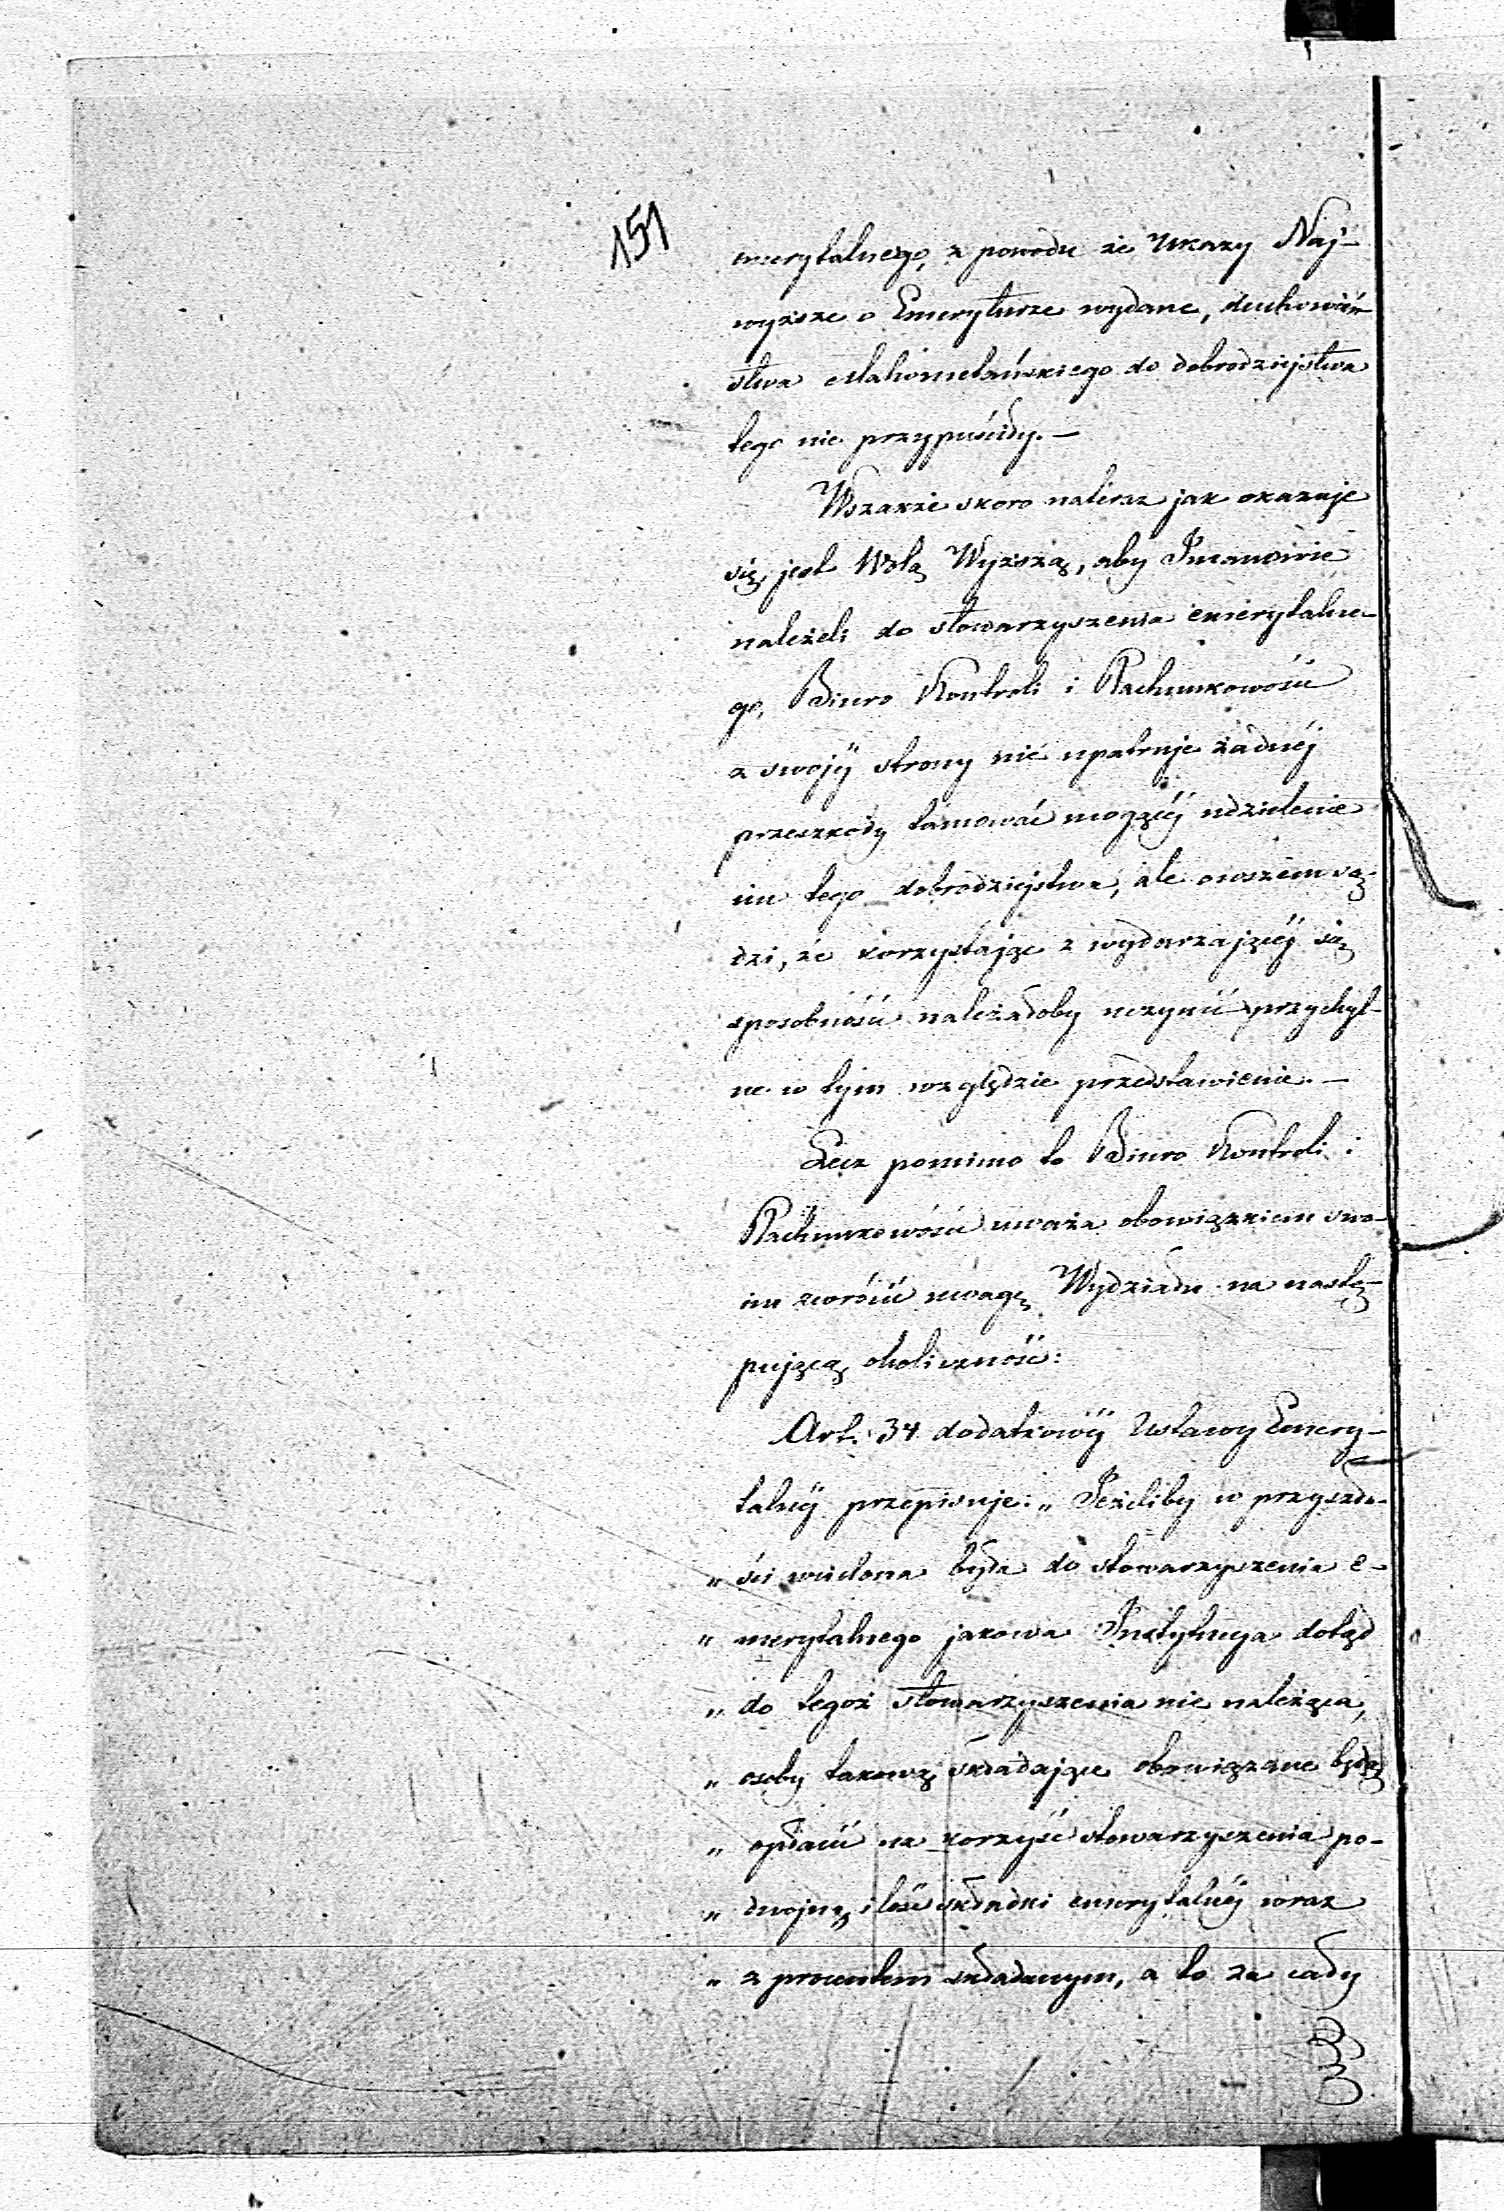 151
merytalnego, z powodu że Ukazy Naj-
wyższe o Emeryturze wydane, duchowień-
stwa Mahometańskiego do dobrodziejstwa
tego nie przypuściły. —
Wszakże skoro nalersz jak okazuje
się, jest Wolą Wyższą, aby Imanowie
należeli do stowarzyszenia emerytalne-
go, Biuro Kontroli i Rachunkowości
z swojéj strony nie upatruje żadnéj
przeszkody tamować mogącéj udzielenie
im tego dobrodziejstwa, ale owszem są-
dzi, że korzystając z wydarzającéj się
sposobności należałoby uczynić przychyl-
ne w tym względzie przedstawienie. —
Lecz pomimo to Biuro Kontroli i
Rachunkowości uważa obowiązkiem swo-
im zwrócić uwagę Wydziału na nastę-
pującą okoliczność:
Art. 34 dodatkowéj Ustawy Emery-
talnéj przepisuje: „Jeżeliby w przyszło-
„ ści wcielona była do stowarzyszenia e-
„ merytalnego jakowa Instytucya dotąd
„ do tegoż stowarzyszenia nie należąca,
„ osoby takową składające obowiązane będą
„ opłacić na korzyść stowarzyszenia po-
„ dwojną ilość składki emerytalnéj wraz
„ z procentem składanym, a to za cały